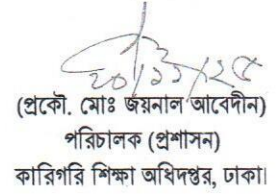 ২০/১১/২৫
(প্রকৌ. মোঃ জয়নাল আবেদীন)
পরিচালক (প্রশাসন)
কারিগরি শিক্ষা অধিদপ্তর, ঢাকা।